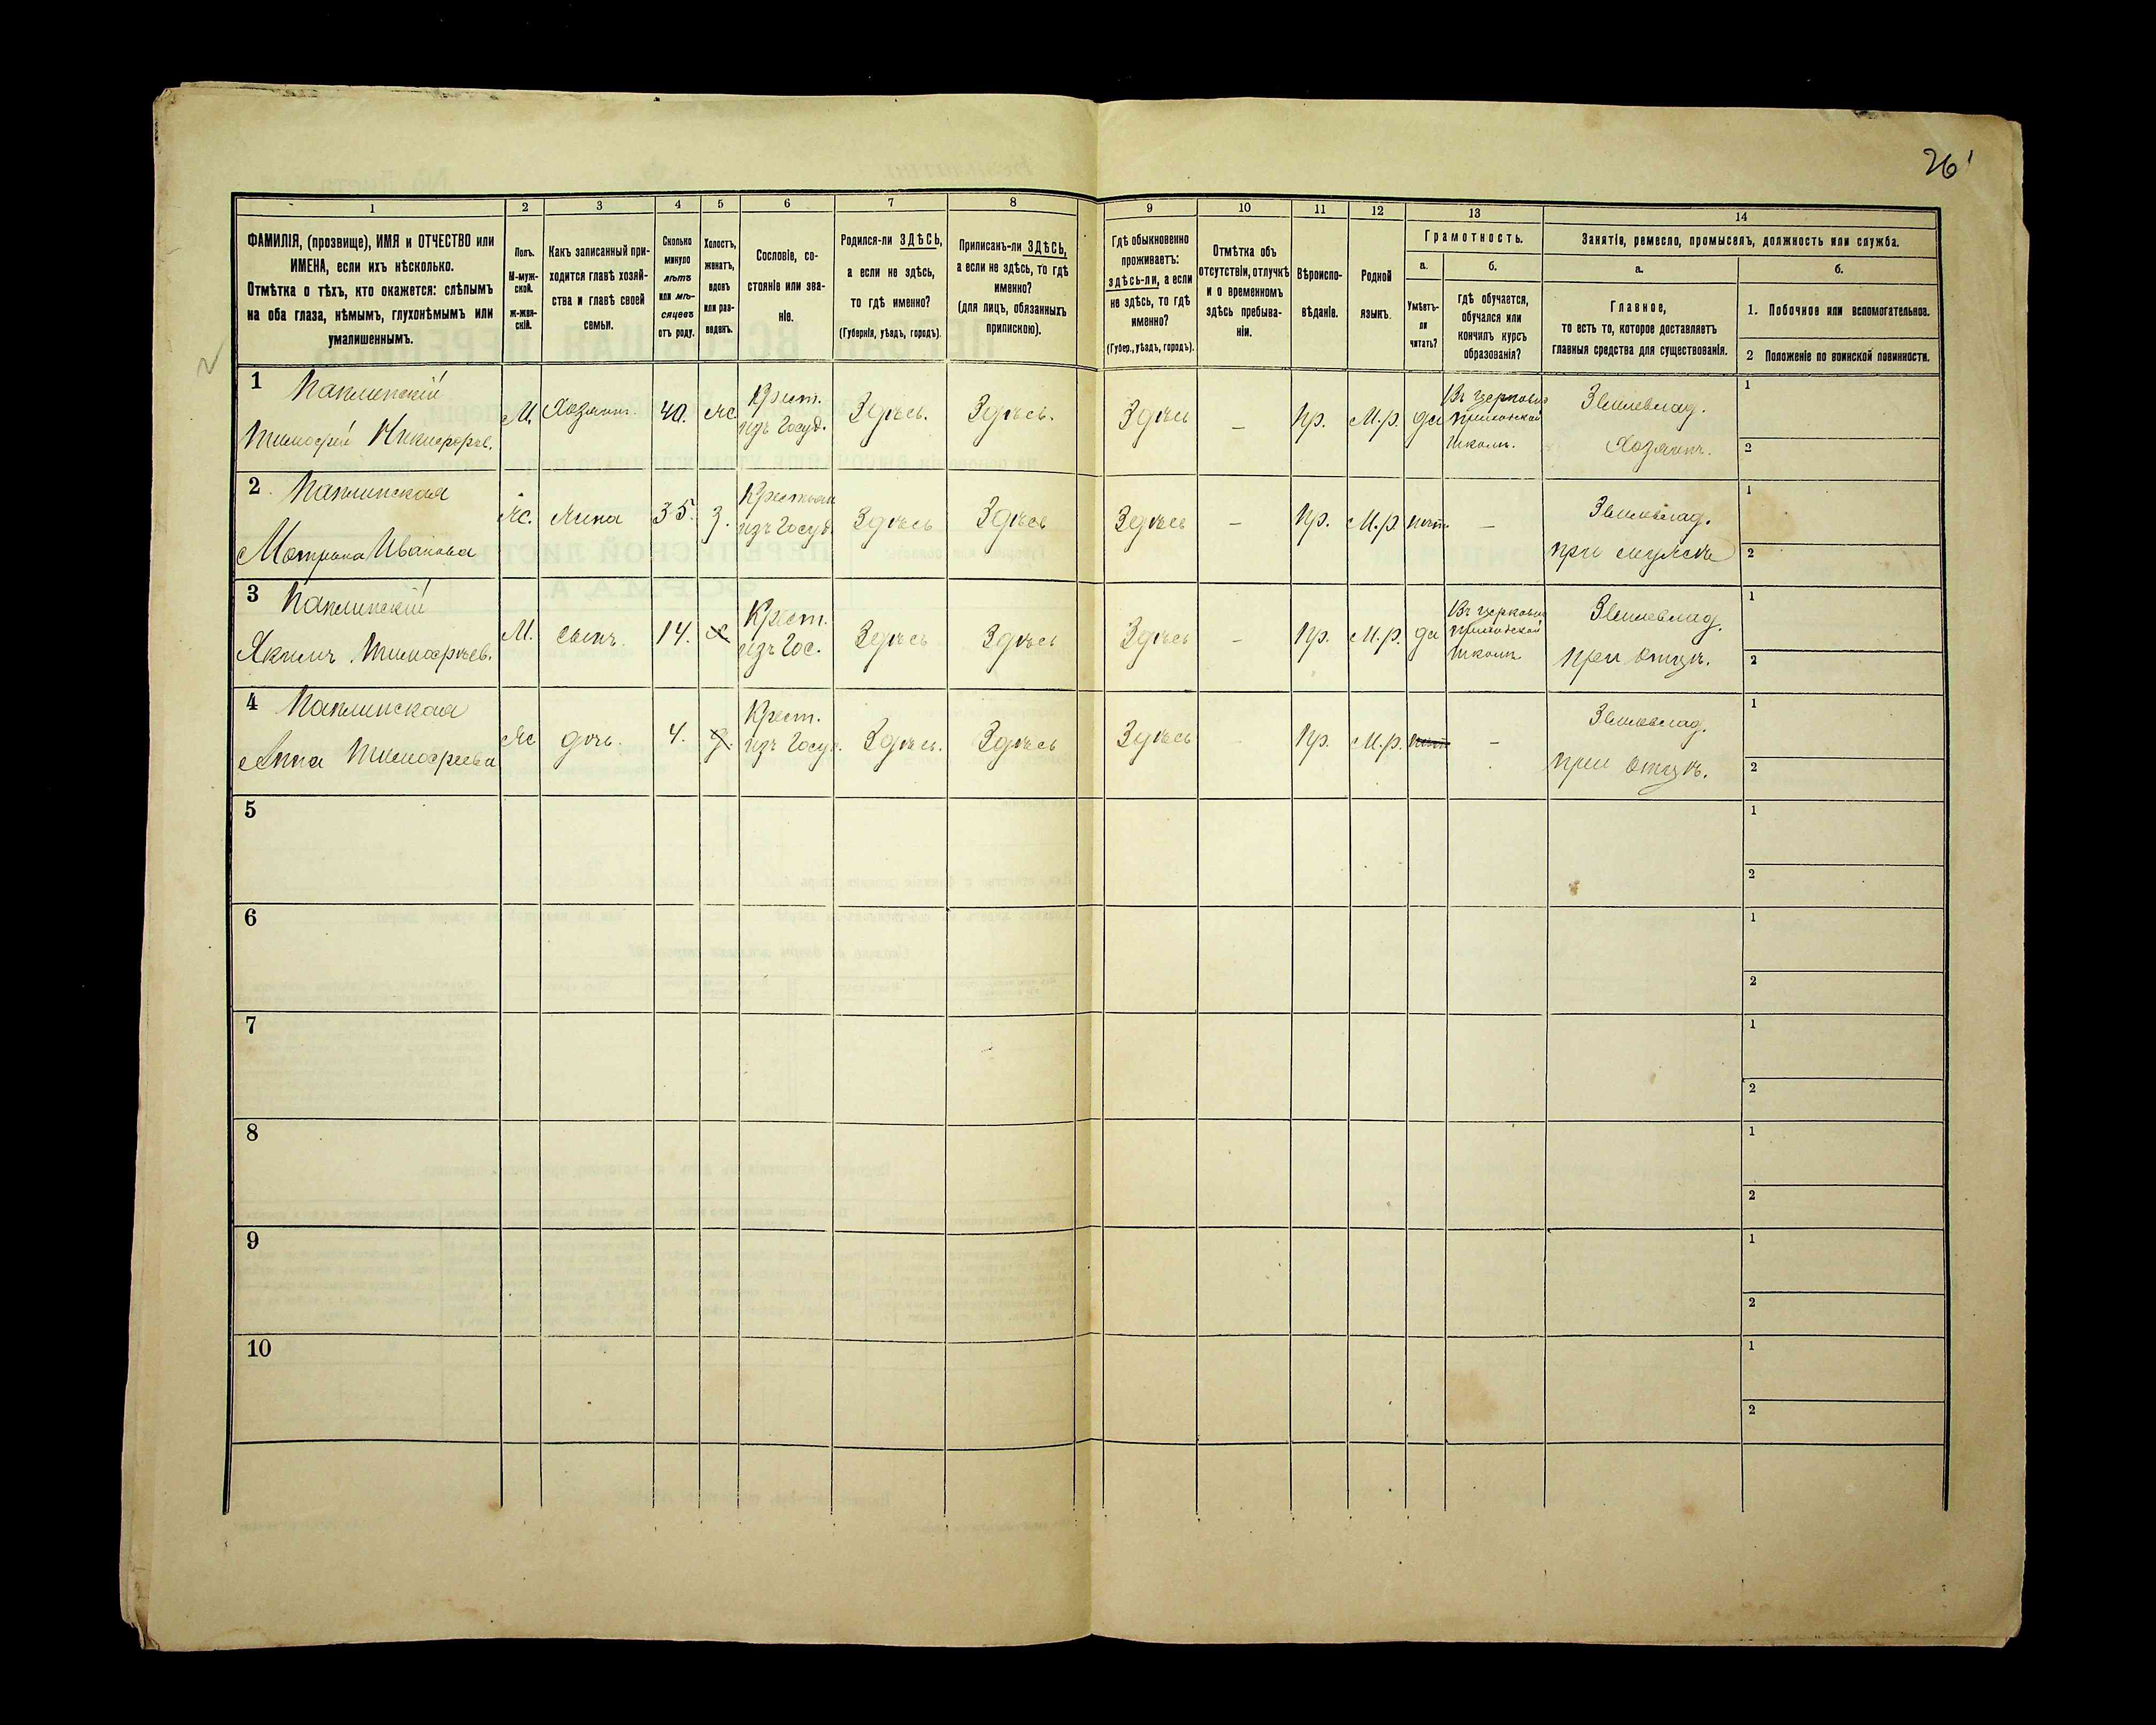 26
1
2
3
4
5
6
7
8
9
10
11
12
13
14
ФАМИЛІЯ, (прозвище), ИМЯ и ОТЧЕСТВО или
ИМЕНА, если ихъ нѣсколько.
Отмѣтка о тѣхъ, кто окажется: слѣпымъ
на оба глаза, нѣмымъ, глухонѣмымъ или
умалишеннымъ.
Полъ.
М-муж-
ской.
Ж-жен-
скій.
Какъ записанный при-
ходится главѣ хозяй-
ства и главѣ своей
семьи.
Сколько
минуло
лѣтъ
или мѣ-
сяцевъ
отъ роду.
Холостъ,
женатъ,
вдовъ
или раз-
веденъ.
Сословіе, со-
стояніе или зва-
ніе.
Родился-ли ЗДѢСЬ,
а если не здѣсь,
то гдѣ именно?
(Губернія, уѣздъ, городъ).
Приписанъ-ли ЗДѢСЬ,
а если не здѣсь, то гдѣ
именно?
(для лицъ, обязанныхъ
припискою).
Гдѣ обыкновенно
проживаетъ:
здѣсь-ли, а если
не здѣсь, то гдѣ
именно?
(Губер., уѣздъ, городъ).
Отмѣтка объ
отсутствіи, отлучкѣ
и о временномъ
здѣсь пребыва-
ніи.
Вѣроиспо-
вѣданіе.
Родной
языкъ.
Грамотность.
а.
Умѣетъ-
ли
читать?
б.
гдѣ обучается,
обучался или
кончилъ курсъ
образованія?
Занятіе, ремесло, промыселъ, должность или служба.
а.
Главное,
то есть то, которое доставляетъ
главныя средства для существованія.
б.
1. Побочное или вспомогательное.
2 Положеніе по воинской повинности.
1
Тимофей Никифоров.
М.
Хозяинъ.
40.
Ж
Крест.
изъ Госуд.
Здѣсь.
Здѣсь.
Здѣсь
–
Пр.
М.р.
да
Въ церковно
приходской
школѣ.
Землевлад.
Хозяинъ.
1
2
2
Матрона Иванова
Ж.
Жена
35.
З.
Крестьян
изъ Госуд.
Здѣсь
Здѣсь
Здѣсь
–
Пр.
М.р
нѣт.
–
Землевлад.
при мужѣ
1
2
3
Якимъ Тимофѣев.
М.
сынъ.
14.
х
Крест.
изъ Гос.
Здѣсь
Здѣсь
Здѣсь
–
Пр.
М.р.
да
Въ церковно
приходской
школѣ
Землевлад.
при отцѣ.
1
2
4
Анна Тимофеева
Ж
дочь.
4.
Крест.
изъ Госуд.
Здѣсь.
Здѣсь
Здѣсь
–
Пр.
М.р.
нѣт
–
Землевлад.
при отцѣ.
1
2
5
1
2
6
1
2
7
1
2
8
1
2
9
1
2
10
1
2